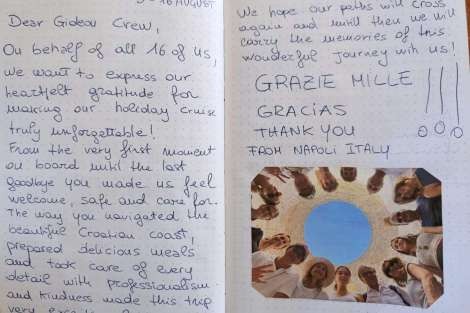 - 16 AUGUST
Dear Gideon Crew,
On behalf of all 16 of us,
we want to express our
heartfelt gratitude for
making our holiday cruise
truly unforgettable!
From the very first moment
on board until the last
goodbye you made us feel
welcome, safe and care for.
The way you navigated the
beautiful Croatian coast,
prepared delicious meals
and took care of every
detail with professionalism
and kindness made this trip
very
We hope our paths will cross
again and until then we will
carry the memories of this
wonderful journey wih us!
GRAZIE MILLE
GRACIAS
THANK YOU !!!
FROM NAPOLI ITALY